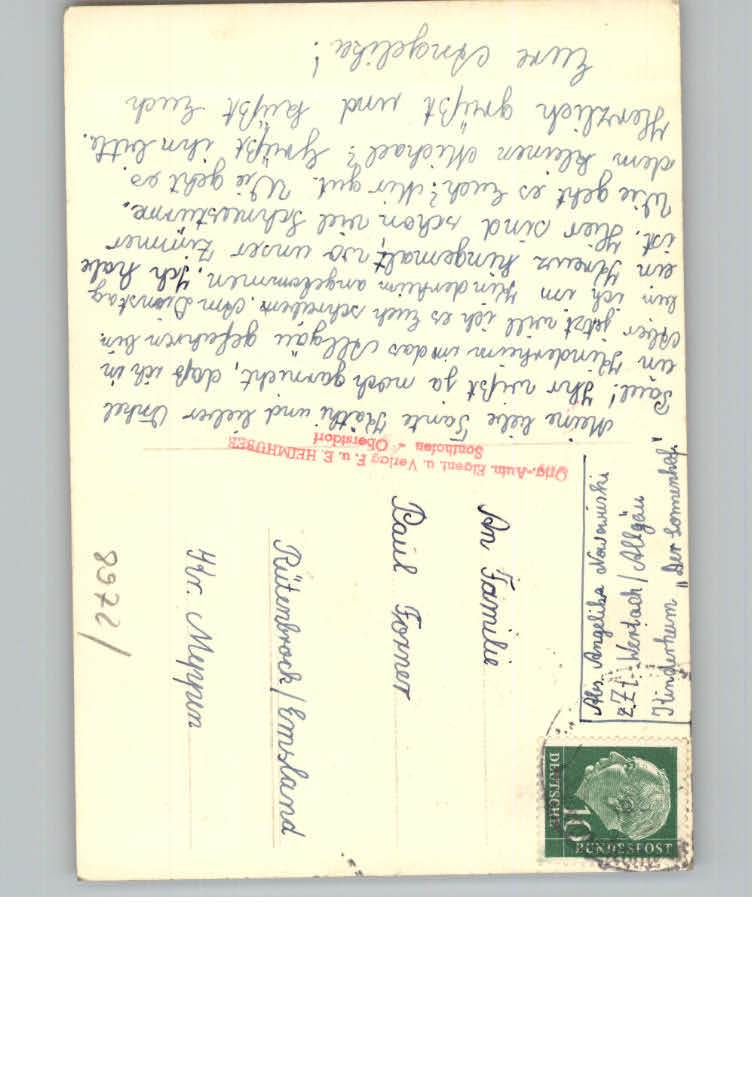 Meine liebe Tante Käthi und lieber Onkel
Paul! Ihr wißt ja noch garnicht, daß ich in
ein Kinderheim in das Allgäu gefahren bin.
Aber jetzt will ich es Euch schreiben. Am Dienstag
bin ich im Kinderheim angekommen. Ich habe
ein Kreuz hingemalt, wo unser Zimmer
ist. Hier sind schon viel Schneestürme.
Wie geht es Euch? Mir gut. Wie geht es
dem kleinen Michael? Grüßt ihn bitte.
Herzlich grüßt und küßt Euch
Eure Angelika!
Orig.-Aufn. Eigent. u. Verlag F. u. E. HEIMHUBER
Sonthofen - Oberstdorf
Abs. Angelika
zZt. Wertach/Allgäu
Kinderheim „Der Sonnenhof"
DEUTSCHE
BUNDESPOST
10
An Familie
Paul Forner
Rütenbrock/Emsland
Kr. Meppen
8972/